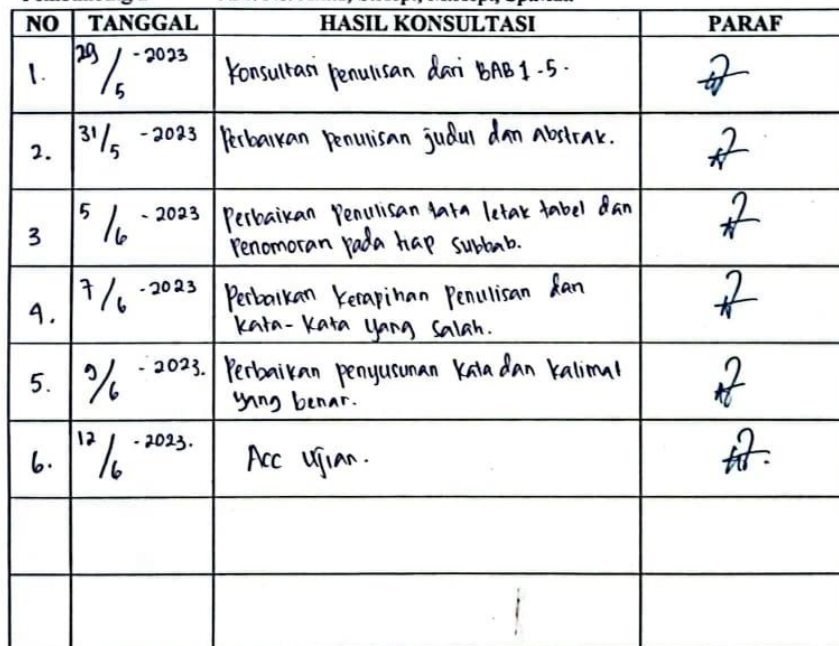 NO TANGGAL HASIL KONSULTASI PARAF
1. 29/5 - 2023 Konsultasi penulisan dari BAB 1 - 5.
2. 31/5 - 2023 Perbaikan penulisan judul dan abstrak.
3 5/6 - 2023 Perbaikan Penulisan tata letak tabel dan
Penomoran pada tiap subbab.
4. 7/6 - 2023 Perbaikan kerapihan Penulisan dan
kata-kata yang salah.
5. 9/6 - 2023. Perbaikan penyusunan kata dan kalimat
yang benar.
6. 12/6 - 2023. Acc ujian.